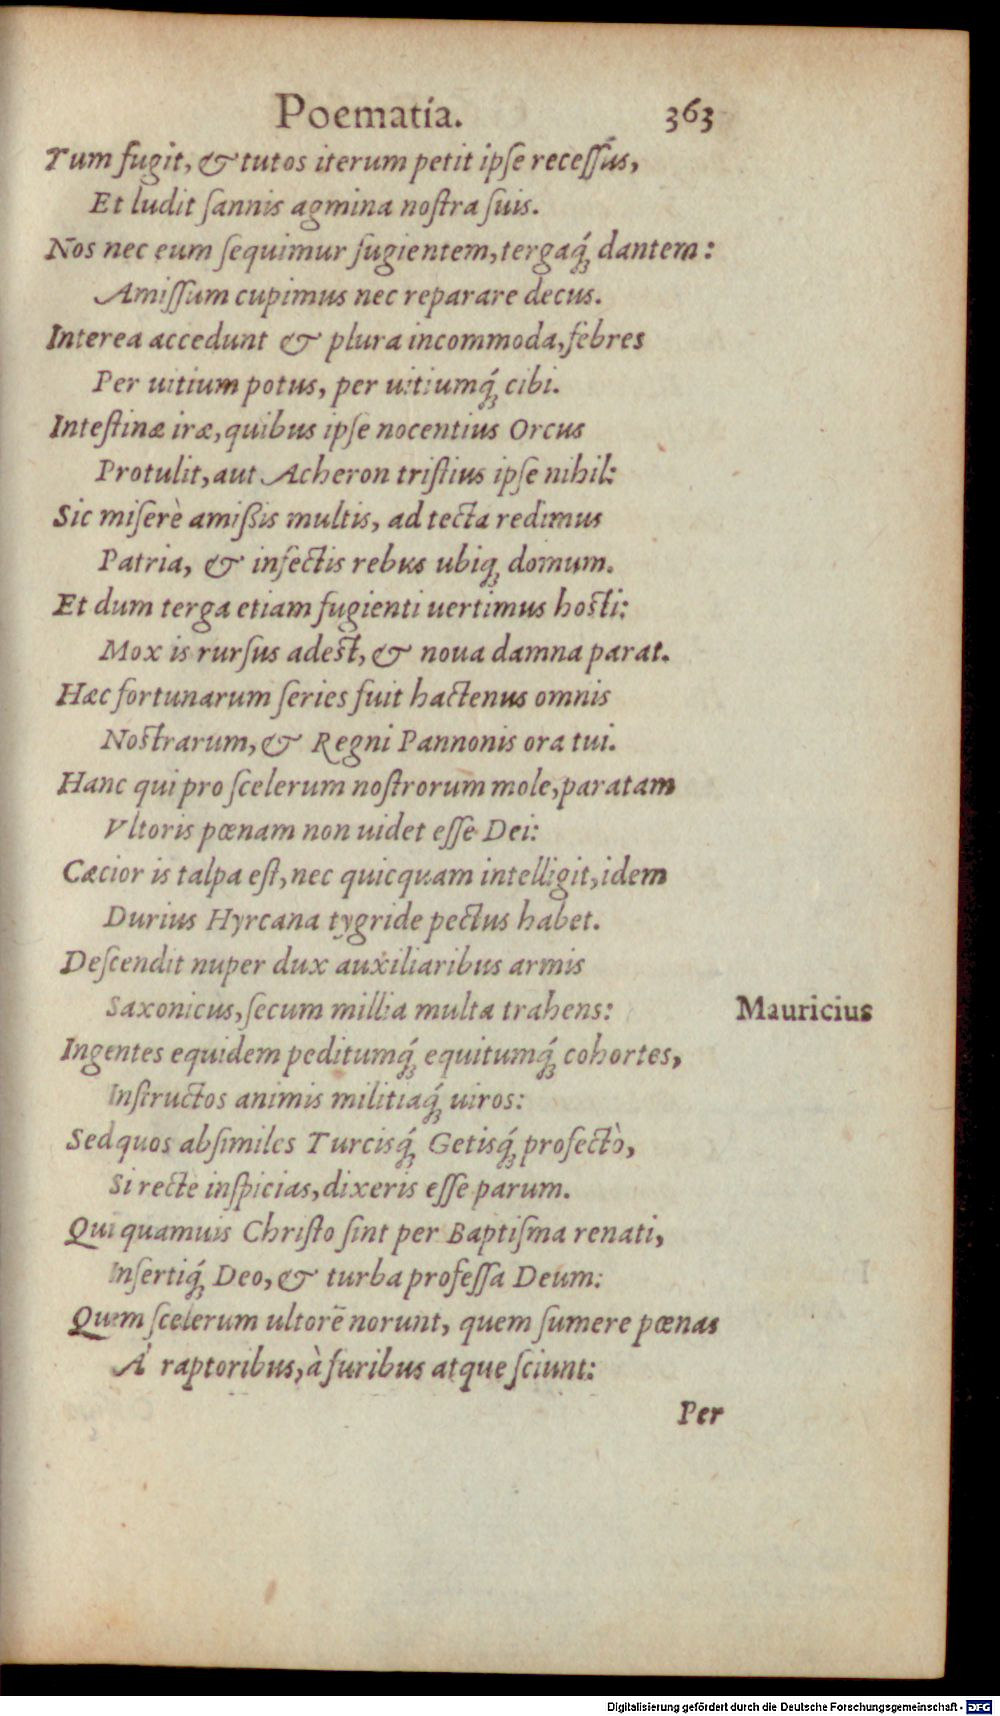 Poematia. 363
Tum fugit, & tutos iterum petit ipſe receſſus,
Et ludit ſannis agmina noſtra ſuis.
Nos nec eum ſequimur fugientem, tergaq́; dantem:
Amiſſum cupimus nec reparare decus.
Interea accedunt & plura incommoda, febres
Per uitium potus, per uitiumq́; cibi.
Inteſtinæ iræ, quibus ipſe nocentius Orcus
Protulit, aut Acheron triſtius ipſe nihil:
Sic miſerè amißis multis, ad tecta redimus
Patria, & infectis rebus ubiq; domum.
Et dum terga etiam fugienti uertimus hoſti:
Mox is rurſus adeſt, & noua damna parat.
Hæc fortunarum ſeries fuit hactenus omnis
Noſtrarum, & Regni Pannonis ora tui.
Hanc qui pro ſcelerum noſtrorum mole, paratam
Vltoris pœnam non uidet eſſe Dei:
Cæcior is talpa eſt, nec quicquam intelligit, idem
Durius Hyrcana tygride pectus habet.
Deſcendit nuper dux auxiliaribus armis
Saxonicus, ſecum millia multa trahens: Mauricius
Ingentes equidem peditumq́; equitumq́; cohortes,
Inſtructos animis militiaq́; uiros:
Sed quos abſimiles Turcisq́; Getisq́; profectò,
Si recte inſpicias, dixeris eſſe parum.
Qui quamuis Chriſto ſint per Baptiſma renati,
Inſertiq́; Deo, & turba profeſſa Deum:
Quem ſcelerum ultorē norunt, quem ſumere pœnas
A' raptoribus, à furibus atque ſciunt:
Per
Digitalisierung gefördert durch die Deutsche Forschungsgemeinschaft - DFG